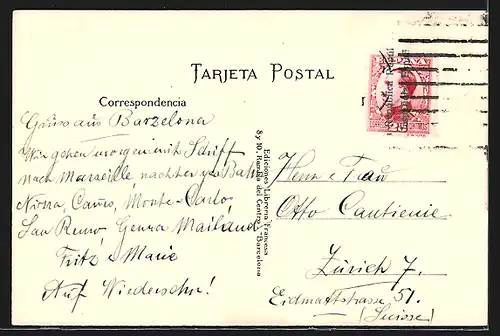 TARJETA POSTAL
Correspondencia
Grüsse aus Barzelona
Wir gehen morgen mit Schiff
nach Marseille, nachher per Bahn
Nizza, Monte-Carlo,
San Remo, Genua Mailand
Fritz & Marie
Auf Wiedersehn!
Ediciones Librería Francesa
8 y 10, Rambla del Centro, - Barcelona
Herr & Frau
Otto Cautienie
Zürich 7.
Eidmattstrasse 51.
(Suisse)